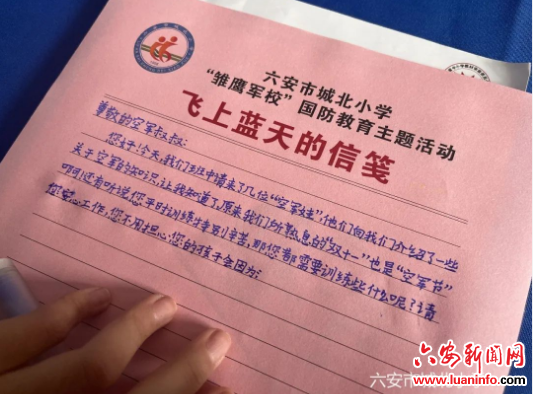 六安市城北小学
“雏鹰军校”国防教育主题活动
飞上蓝天的信笺
尊敬的空军叔叔:
您好!今天,我们班申请来了几位“空军娃”,他们向我们介绍了一些
关于空军的知识,让我知道了原来我们所熟悉的“双十一”也是“空军节”
啊!还有听说您平时训练特别辛苦,那您都需要训练些什么呢?请
您安心工作,您不用担心,您的孩子会因为
六安市城
六安新闻网
www.luaninfo.com